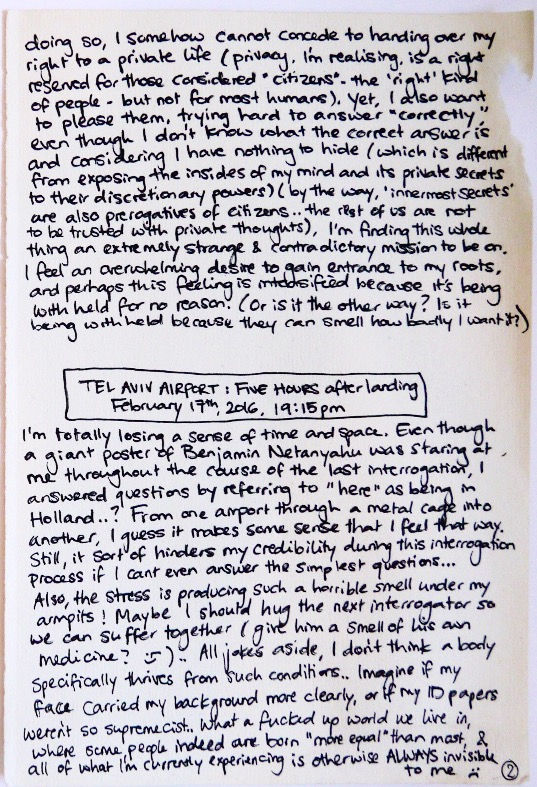 doing so, I somehow cannot concede to handing over my
right to a private life (privacy, I'm realising, is a right
reserved for those considered "citizens" - the 'right' kind
of people - but not for most humans). Yet, I also want
to please them, trying hard to answer "correctly,"
even though I don't know what the correct answer is
and considering I have nothing to hide (which is different
from exposing the insides of my mind and its private secrets
to their discretionary powers) (by the way, 'innermost secrets'
are also prerogatives of citizens.. the rest of us are not
to be trusted with private thoughts), I'm finding this whole
thing an extremely strange & contradictory mission to be on.
I feel an overwhelming desire to gain entrance to my roots,
and perhaps this feeling is intensified because it's being
with held for no reason. (Or is it the other way? Is it
being withheld because they can smell how badly I want it?)
TEL AVIV AIRPORT: FIVE HOURS after landing
February 17th, 2016, 19:15pm
I'm totally losing a sense of time and space. Even though
a giant poster of Benjamin Netanyahu was staring at
me throughout the course of the last interrogation, I
answered questions by referring to "here" as being in
Holland..? From one airport through a metal cage into
another, I guess it makes some sense that I feel that way.
Still, it sort of hinders my credibility during this interrogation
process if I cant even answer the simplest questions...
Also, the stress is producing such a horrible smell under my
armpits! Maybe I should hug the next interrogator so
we can suffer together (give him a smell of his own
medicine? :-) ).. All jokes aside, I don't think a body
specifically thrives from such conditions.. Imagine if my
face carried my background more clearly, or if my ID papers
weren't so supremecist.. What a fucked up world we live in,
where some people indeed are born "more equal" than most, &
all of what I'm currently experiencing is otherwise ALWAYS invisible
to me :( 2